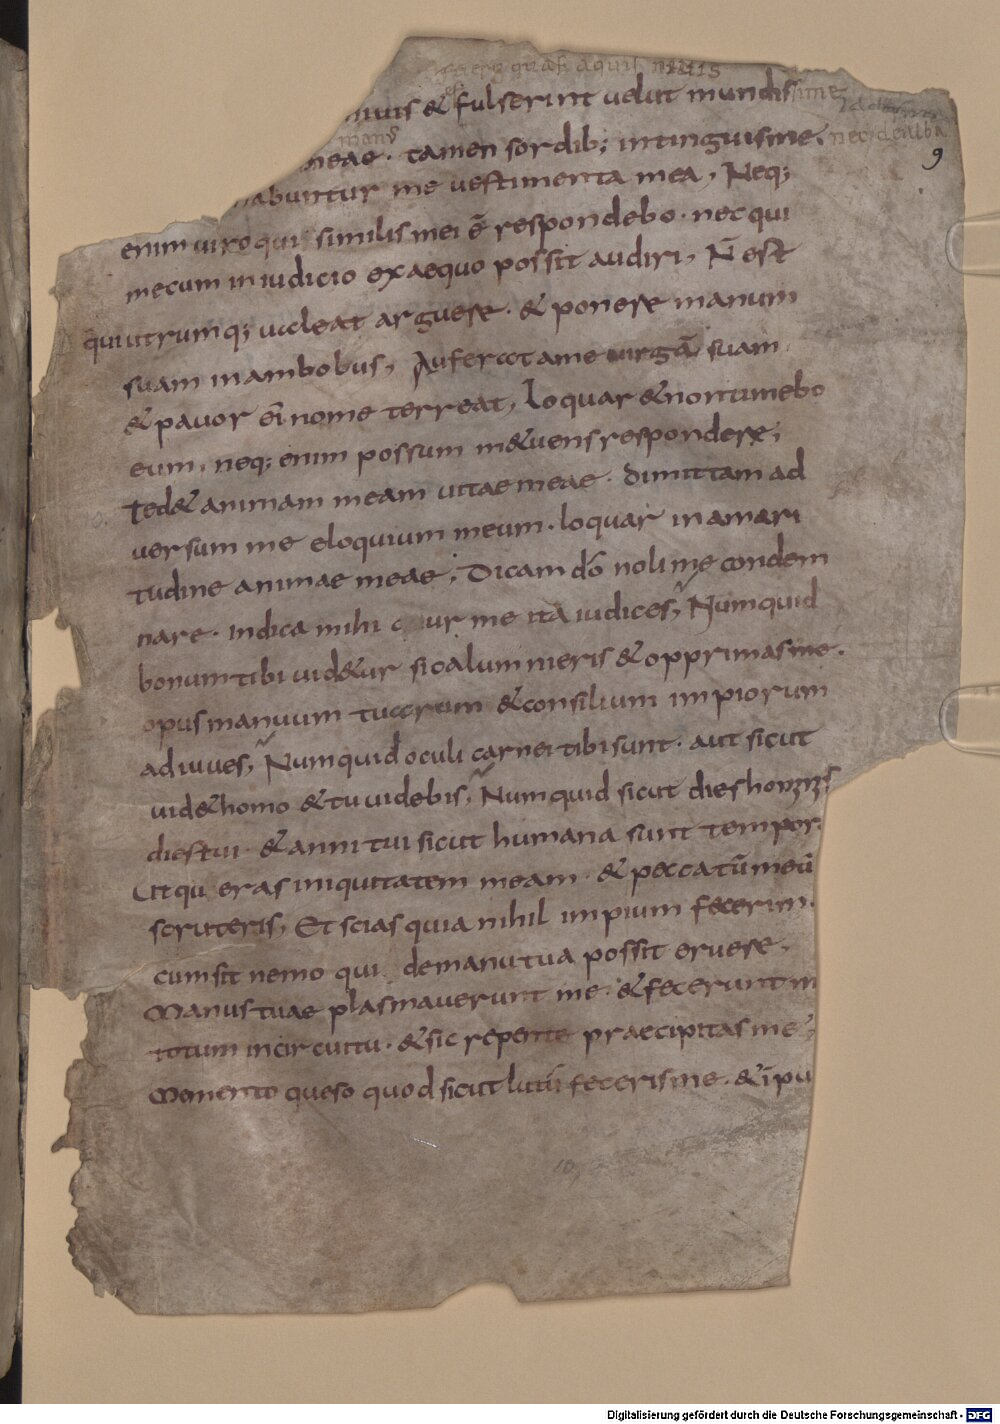 quasi aquis nivis
nivis & fulserint velut mundissime
meae · tamen sordib; intinguisme.
nec dealba
9
abuntur me vestimenta mea, Neq;
enim viro qui similis mei ē respondebo · nec qui
mecum in iudicio exaequo possit audiri, N̄ est
qui utrumq; valeat arguere · & ponere manum
suam inambobus, Auferat ame virgā suam
& pavor ei nome terreat, Loquar & nontimebo
eum, neq; enim possum m&uens respondere;
Ted& animam meam vitae meae · dimittam ad
versum me eloquium meum · loquar inamari
tudine animae meae, Dicam dō noli me condem
nare · indica mihi cur me ita iudices, Numquid
bonumtibi vid&ur si calumnieris & opprimasme.
opusmanuum tuarum & consilium impiorum
adiuves, Numquid oculi carnei tibi sunt · aut sicut
vid& homo & tu videbis, Numquid sicut dies hominis
dies tui · & anni tui sicut humana sunt tempor
Ut queras iniquitatem meam · & peccatū meū
scruteris, Et scias quia nihil impium fecerim.
cum sit nemo qui demanu tua possit eruere,
Manus tuae plasmaverunt me · & fecerunt m
totum incircuitu · & sic repente praecipitas me,
Memento queso quod sicut lutū feceris me · & ī pu
10,
Digitalisierung gefördert durch die Deutsche Forschungsgemeinschaft - DFG